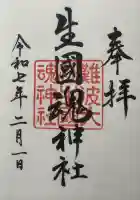 奉拝
生國魂神社
難波大
魂神社
令和七年二月一日